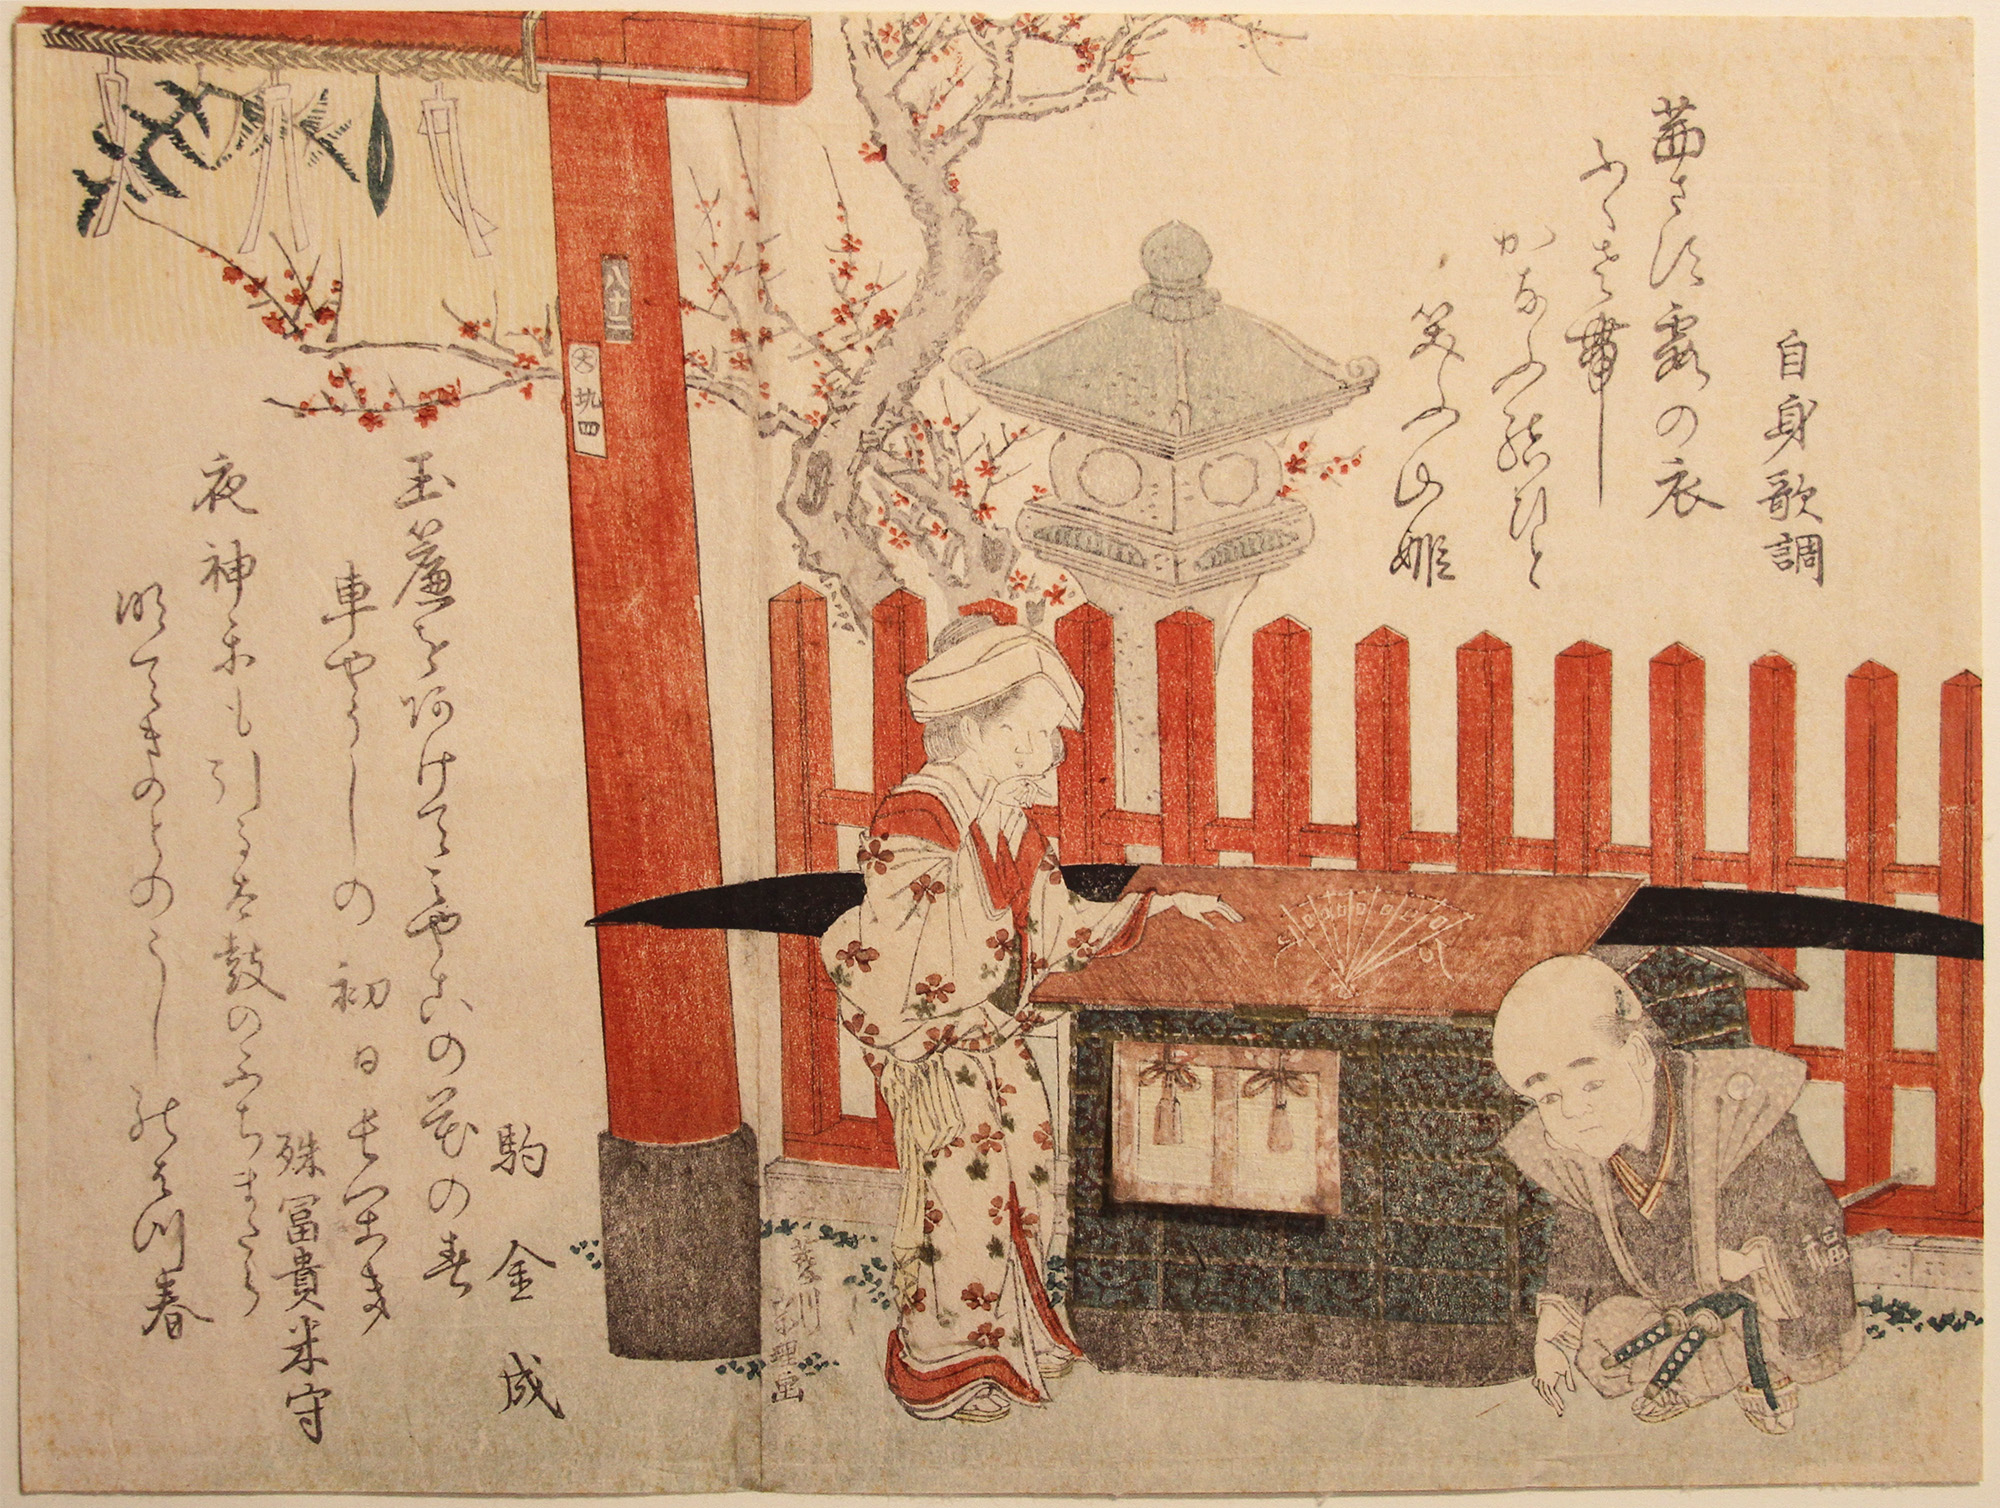 自身歌調
茜さす霞の衣
ふくさ帯
かなふ結ひと
笑ふ山姫
八十二
大
四
駒金成
玉簾をあけてみやこの花の春
車やうしの初日
殊冨貴米守
夜神楽も引る太鼓のふちまくら
明てきのとのうしのはつ春
菱川宗理画
福